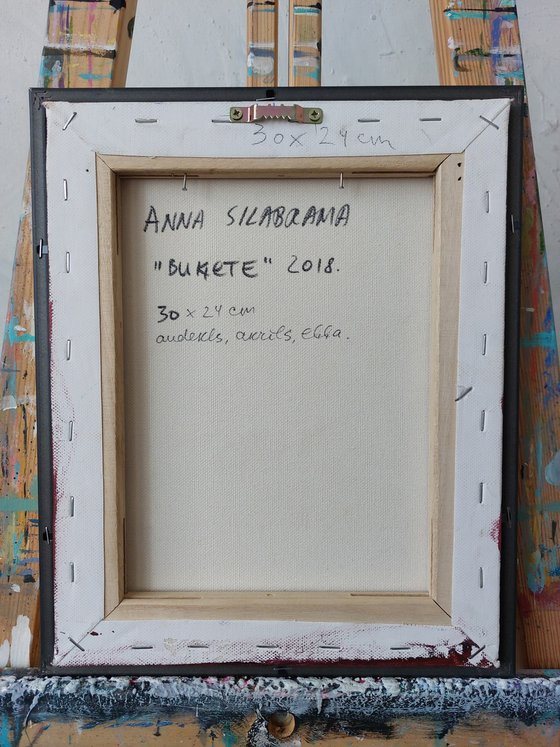 30x24 cm
ANNA SILABRAMA
"BUĶETE" 2018.
30 x 24 cm
audekls, akrils, eļļa.